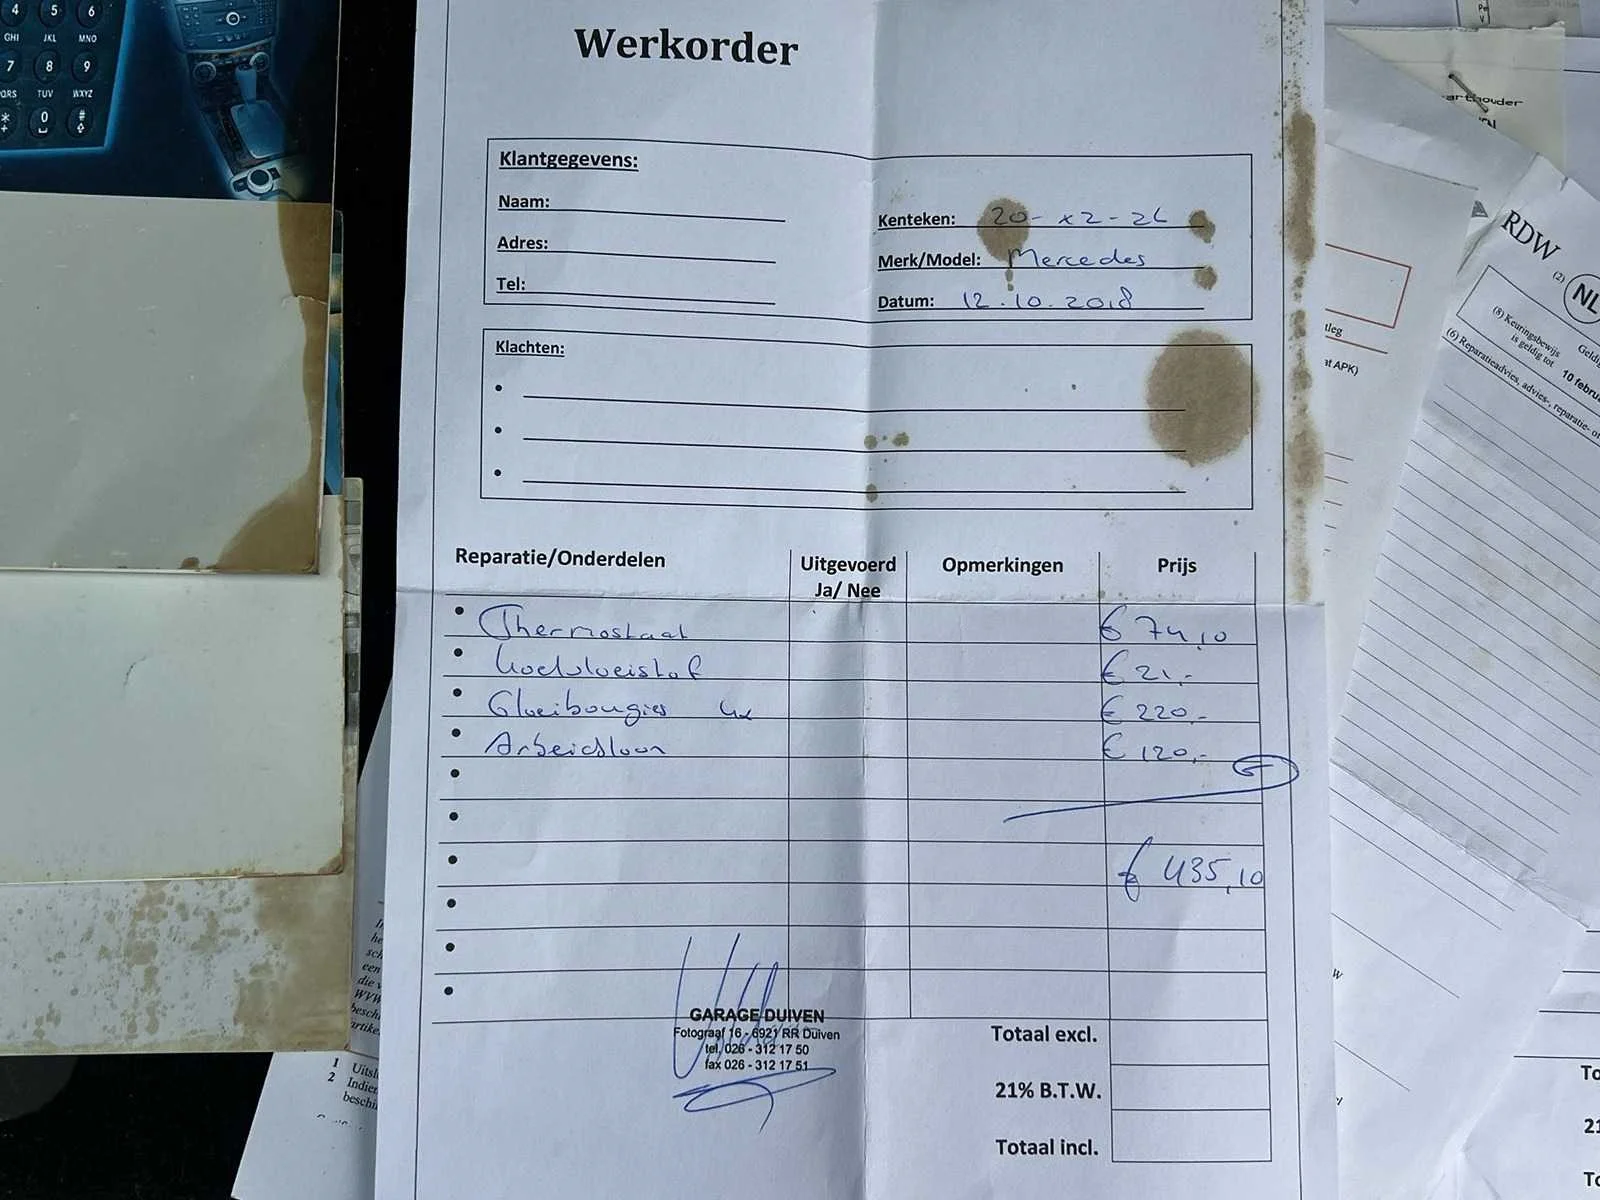 4 5 6
GHI JKL MNO
7 8 9
PQRS TUV WXYZ
* 0 #
+
Werkorder
Klantgegevens:
Naam:
Adres:
Tel:
Kenteken: 20-X2-26
Merk/Model: Mercedes
Datum: 12.10.2018
Klachten:
Reparatie/Onderdelen Uitgevoerd Ja/ Nee Opmerkingen Prijs
Thermostaat € 74,10
Koelvloeistof € 21,-
Gloeibougies 4x € 220,-
Arbeidsloon € 120,-
€ 435,10
GARAGE DUIVEN
Fotograaf 16 - 6921 RR Duiven
tel. 026 - 312 17 50
fax 026 - 312 17 51
Totaal excl.
21% B.T.W.
Totaal incl.
arthouder
RDW
(2) NL
(8) Keuringsbewijs
is geldig tot 10 febru
Geldig
(6) Reparatieadvies, advies-, reparatie- of
tleg
at APK)
In
he
sch
een
die v
WVW
besch
artike
1 Uitsl
2 Indien
beschi
To
21
To